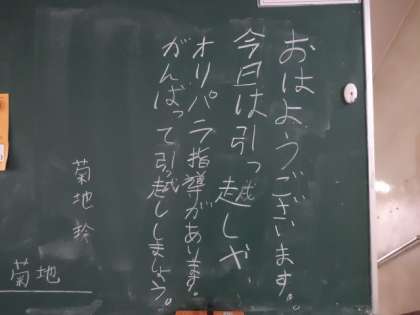 おはようございます。
今日は引っ越しや、
オリパラ指導があります
がんばって引越ししましょう。
菊地
菊地